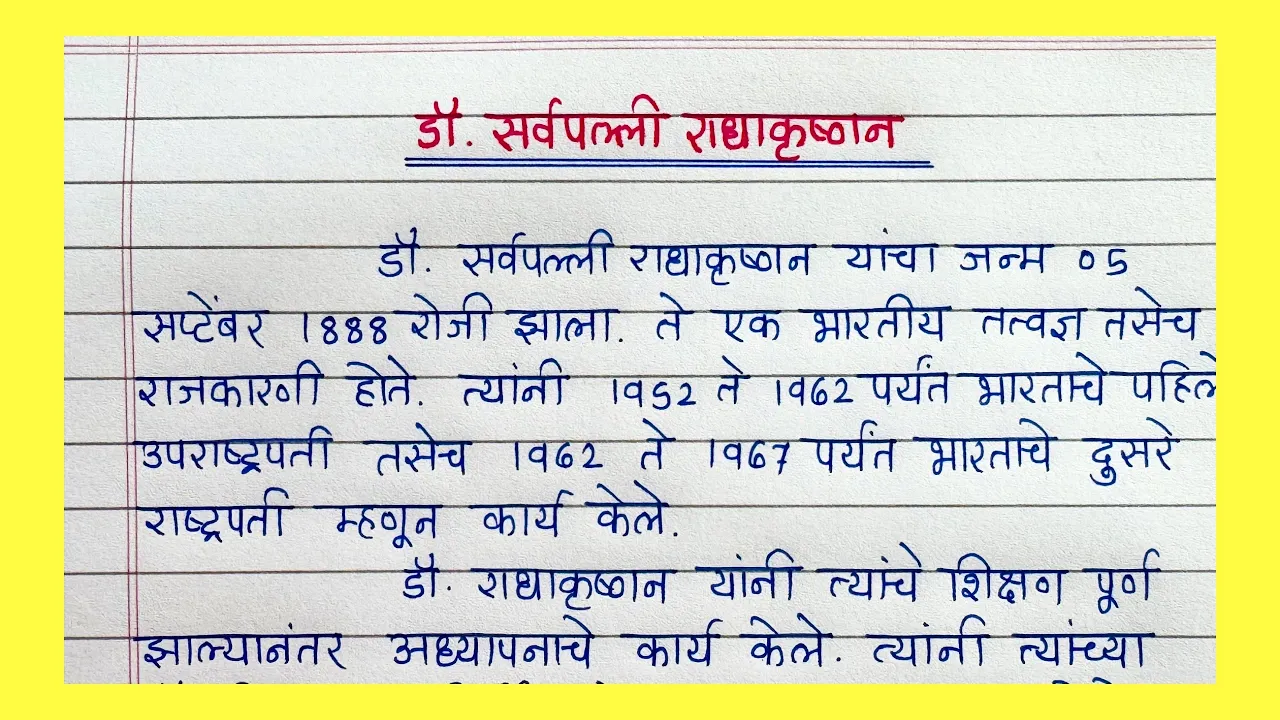 डॉ. सर्वपल्ली राधाकृष्णन
डॉ. सर्वपल्ली राधाकृष्णन यांचा जन्म 05
सप्टेंबर 1888 रोजी झाला. ते एक भारतीय तत्वज्ञ तसेच
राजकारणी होते. त्यांनी 1952 ते 1962 पर्यंत भारताचे पहिले
उपराष्ट्रपती तसेच 1962 ते 1967 पर्यंत भारताचे दुसरे
राष्ट्रपती म्हणून कार्य केले.
डॉ. राधाकृष्णन यांनी त्यांचे शिक्षण पूर्ण
झाल्यानंतर अध्यापनाचे कार्य केले. त्यांनी त्यांच्या